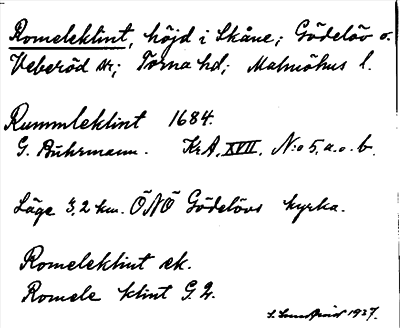 Romeleklint, höjd i Skåne; Gödelöv o.
Veberöd snr; Torna hd; Malmöhus l.
Rummleklint 1684.
G. Buhrmann. KrA. XVII. N:o 5, a. o. b.
Läge 3,2 km. ÖNÖ Gödelövs kyrka.
Romeleklint ek.
Romele klint G. 2.
1927.